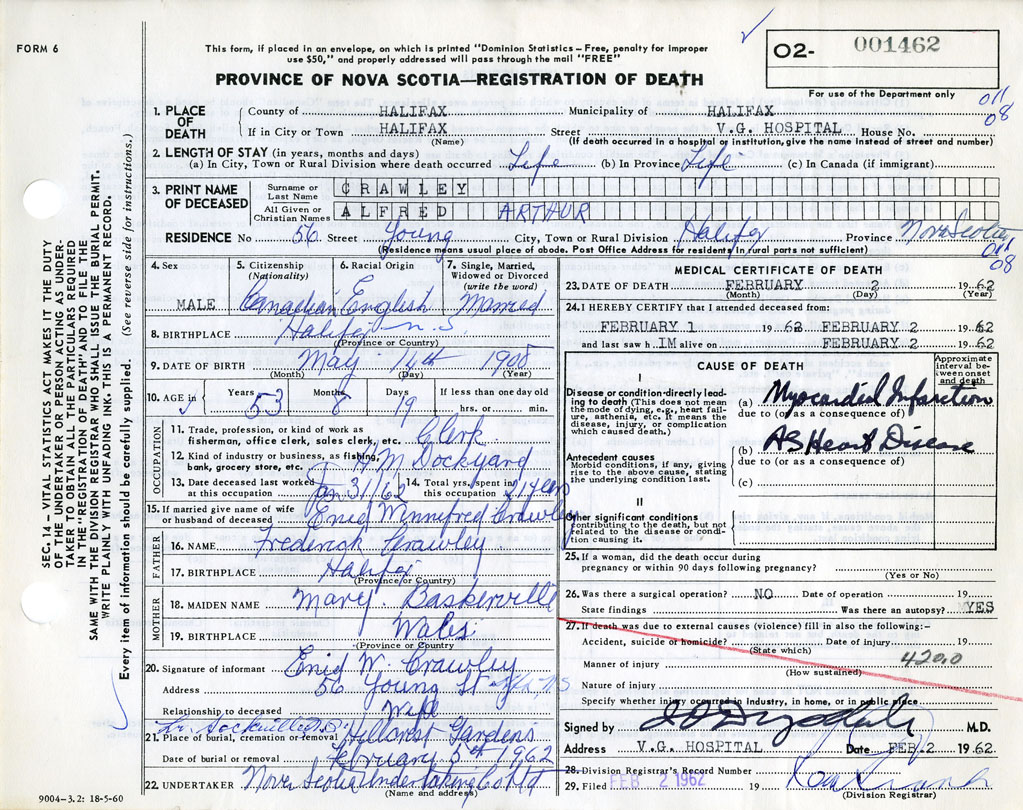 FORM 6
This form, if placed in an envelope, on which is printed "Dominion Statistics – Free, penalty for improper
use $50," and properly addressed will pass through the mail "FREE"
PROVINCE OF NOVA SCOTIA—REGISTRATION OF DEATH
O2- 001462
For use of the Department only
011
08
SEC. 14 – VITAL STATISTICS ACT MAKES IT THE DUTY
OF THE UNDERTAKER OR PERSON ACTING AS UNDER-
TAKER TO OBTAIN ALL THE PARTICULARS REQUIRED
IN THE "REGISTRATION OF DEATH" AND TO FILE THE
SAME WITH THE DIVISION REGISTRAR WHO SHALL ISSUE THE BURIAL PERMIT.
WRITE PLAINLY WITH UNFADING INK. THIS IS A PERMANENT RECORD.
Every item of information should be carefully supplied. (See reverse side for instructions.)
1. PLACE OF DEATH
County of HALIFAX Municipality of HALIFAX
If in City or Town HALIFAX Street V.G. HOSPITAL House No.
(Name) (If death occurred in a hospital or institution, give the name instead of street and number)
2. LENGTH OF STAY (in years, months and days)
(a) In City, Town or Rural Division where death occurred Life (b) In Province Life (c) In Canada (if immigrant)
3. PRINT NAME OF DECEASED
Surname or Last Name CRAWLEY
All Given or Christian Names ALFRED ARTHUR
RESIDENCE No 56 Street Young City, Town or Rural Division Halifax Province Nova Scotia
(Residence means usual place of abode. Post Office Address for residents in rural parts not sufficient)
011
08
4. Sex MALE
5. Citizenship (Nationality) Canadian
6. Racial Origin English
7. Single, Married, Widowed or Divorced (write the word) Married
8. BIRTHPLACE Halifax N.S.
(Province or Country)
9. DATE OF BIRTH May 14th 1908
(Month) (Day) (Year)
10. AGE in Years 53 Months 8 Days 19 If less than one day old
hrs. or min.
OCCUPATION
11. Trade, profession, or kind of work as
fisherman, office clerk, sales clerk, etc. Clerk
12. Kind of industry or business, as fishing,
bank, grocery store, etc. H M Dockyard
13. Date deceased last worked
at this occupation Jan 31/62
14. Total yrs. spent in
this occupation 21 years
15. If married give name of wife
or husband of deceased Enid Winnifred Crawley
FATHER
16. NAME Frederick Crawley
17. BIRTHPLACE Halifax
(Province or Country)
MOTHER
18. MAIDEN NAME Mary Baskerville
19. BIRTHPLACE Wales
(Province or Country)
20. Signature of informant Enid W. Crawley
Address 56 Young St Hfx NS
Relationship to deceased Wife
21. Place of burial, cremation or removal Hillcrest Gardens
Date of burial or removal February 5th 1962
22. UNDERTAKER Nova Scotia Undertaking Co Ltd
(Name and address)
9004–3.2: 18-5-60
MEDICAL CERTIFICATE OF DEATH
23. DATE OF DEATH FEBRUARY 2 1962
(Month) (Day) (Year)
24. I HEREBY CERTIFY that I attended deceased from:
FEBRUARY 1 1962 FEBRUARY 2 1962
and last saw h IM alive on FEBRUARY 2 1962
CAUSE OF DEATH
Approximate interval between onset and death
I
Disease or condition directly lead-
ing to death (This does not mean
the mode of dying, e.g., heart fail-
ure, asthenia, etc. It means the
disease, injury, or complication
which caused death.)
(a) Myocardial Infarction
due to (or as a consequence of)
(b) AS Heart Disease
due to (or as a consequence of)
(c)
Antecedent causes
Morbid conditions, if any, giving
rise to the above cause, stating the
underlying condition last.
II
Other significant conditions
contributing to the death, but not
related to the disease or condi-
tion causing it.
25. If a woman, did the death occur during
pregnancy or within 90 days following pregnancy?
(Yes or No)
26. Was there a surgical operation? NO Date of operation 19
State findings Was there an autopsy? YES
27. If death was due to external causes (violence) fill in also the following:–
Accident, suicide or homicide? Date of injury 19
(State which)
Manner of injury 420.0
(How sustained)
Nature of injury
Specify whether injury occurred in Industry, in home, or in public place
Signed by M.D.
Address V.G. HOSPITAL Date FEB 2 1962
28. Division Registrar's Record Number
29. Filed FEB 2 1962 19
(Division Registrar)